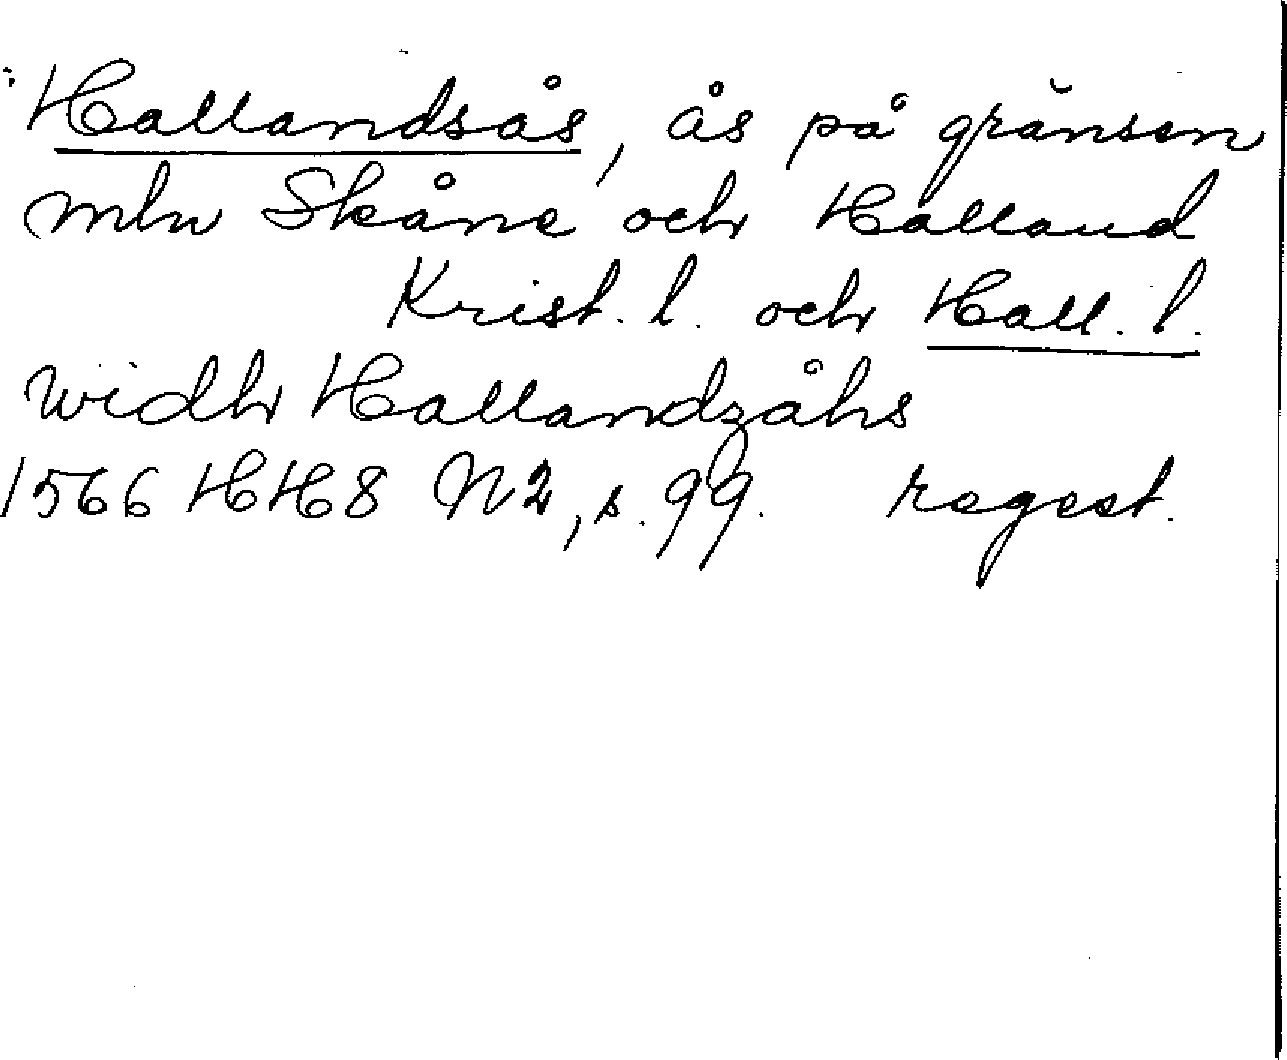 Hallandsås, ås på gränsen
mln Skåne och Halland
Krist. l. och Hall. l.
widh Hallandzåhs
1566 HH8 N2, s. 99. regest.